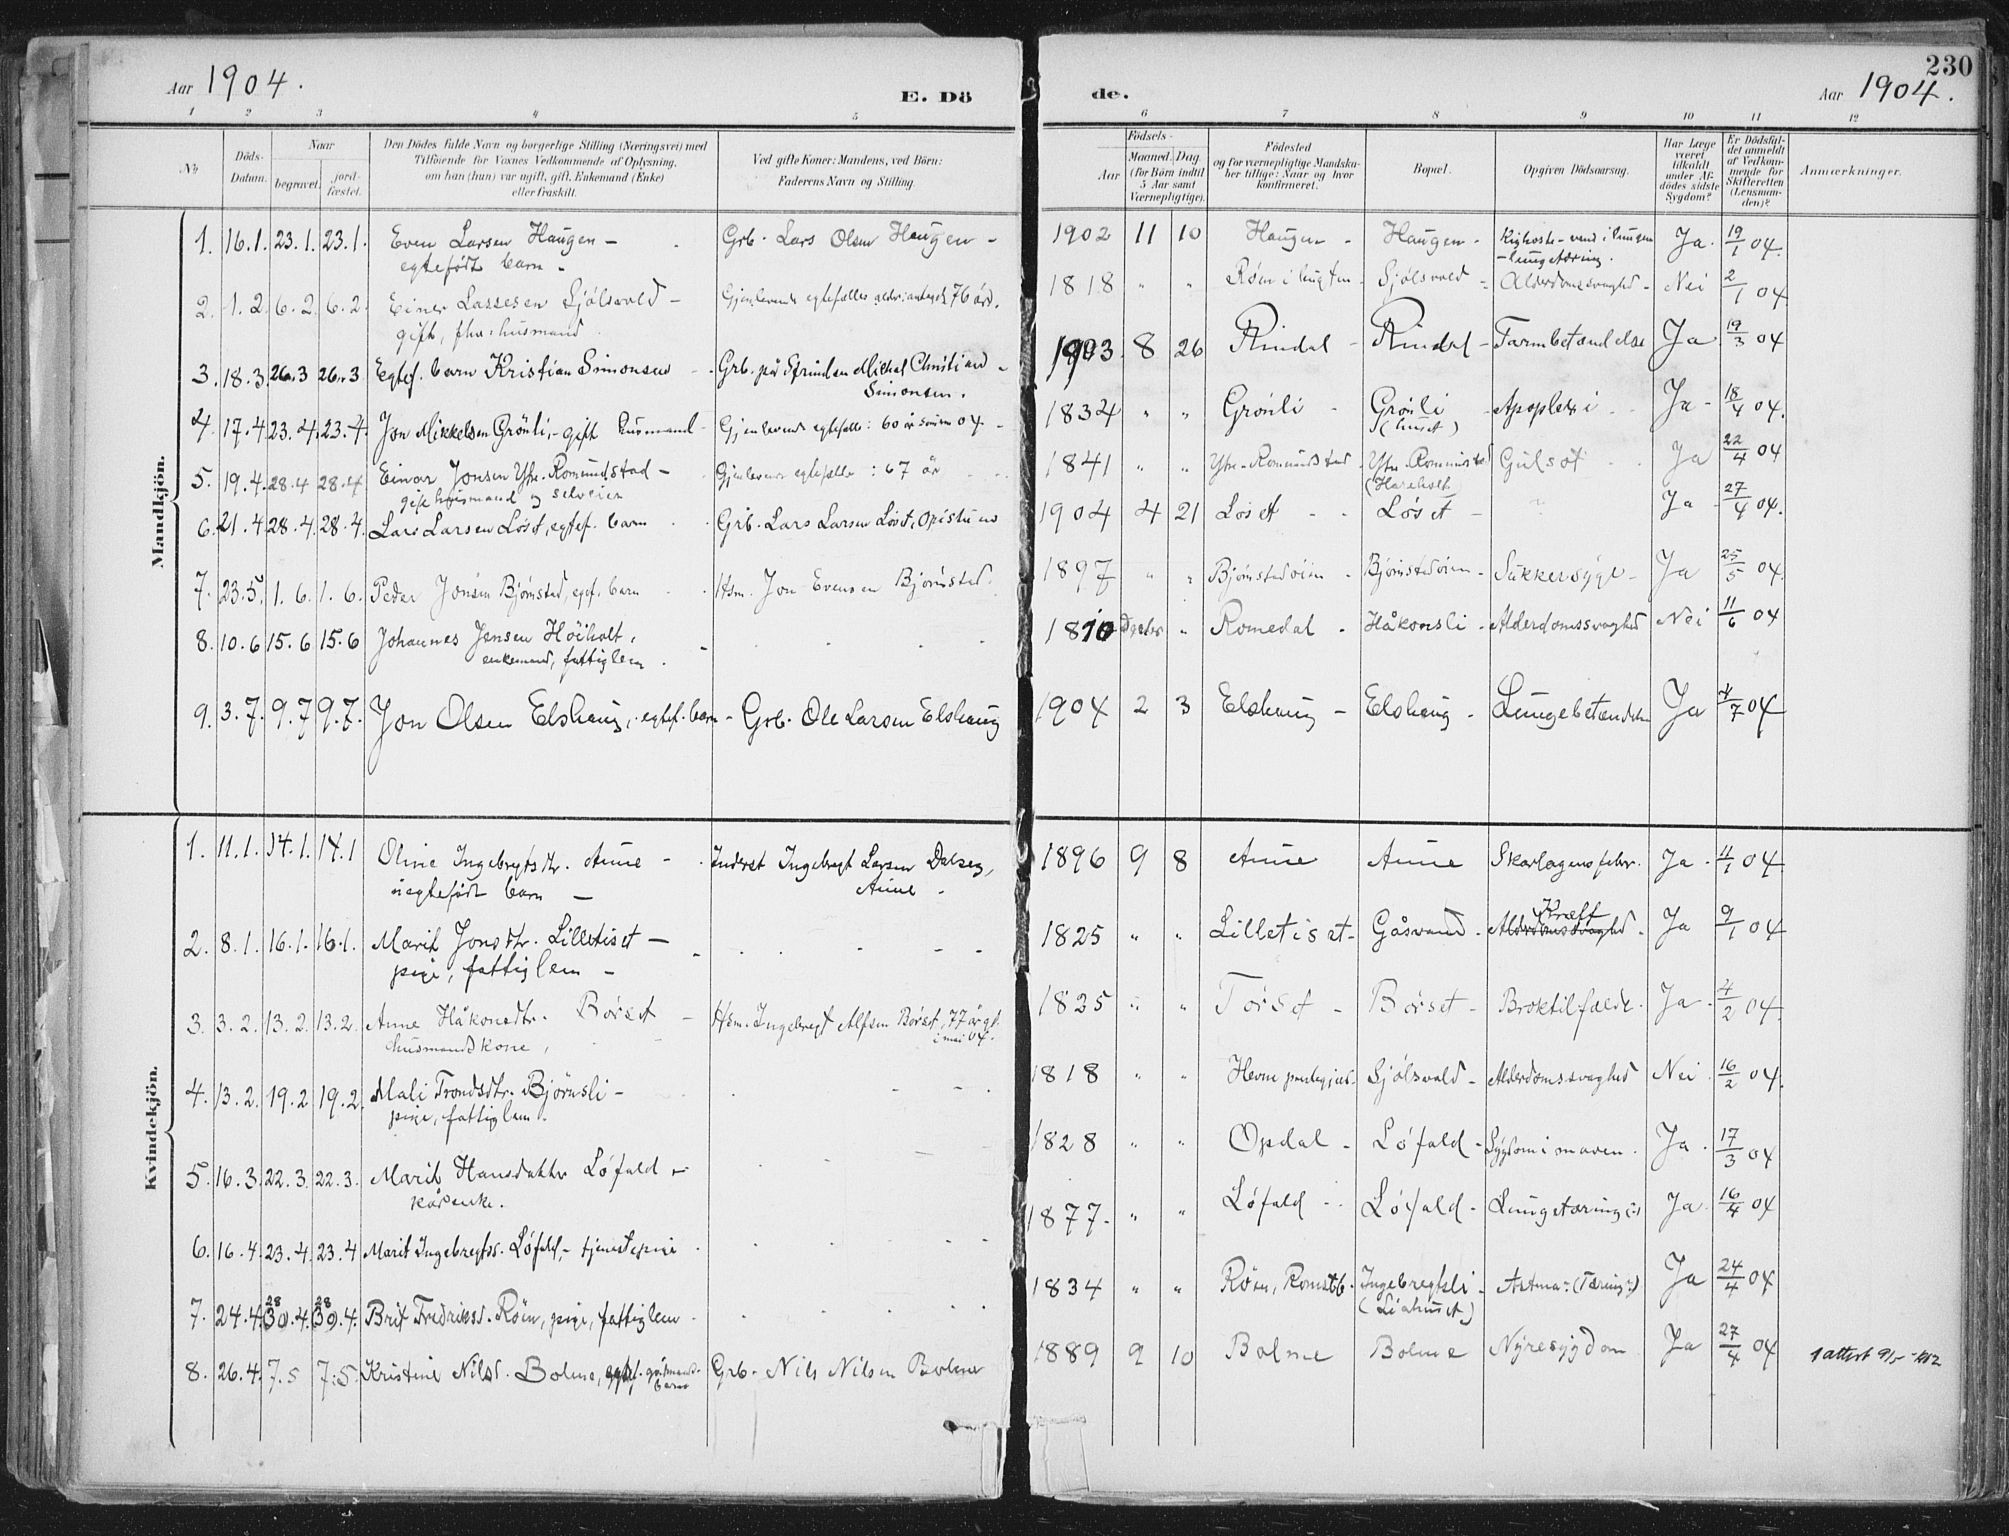 230
Aar 1904.
E. Dö
de.
Aar 1904.
1 2 3 4 5 6 7 8 9 10 11 12
No
Döds-
Datum.
Naar
begravet.
jord-
fæstet.
Den Dödes fulde Navn og borgerlige Stilling (Næringsvei) med
Tilföiende for Voxnes Vedkommende af Oplysning,
om han (hun) var ugift, gift, Enkemand (Enke)
eller fraskilt.
Ved gifte Koner: Mandens, ved Börn:
Faderens Navn og Stilling.
Födsels-
Aar
Maaned. Dag.
(for Börn indtil
5 Aar samt
Værnepligtige).
Födested
og for værnepligtige Mandska-
ber tillige: Naar og hvor
konfirmeret.
Bopæl.
Opgiven Dödsaarsag.
Har Læge
været
tilkaldt
under Af-
dödes sidste
Sygdom?
Er Dödsfal-
det anmeldt
af Vedkom-
mende for
Skifteretten
(Lensman-
den)?
Anmærkninger.
Mandkjön.
1. 16.1. 23.1. 23.1. Even Larsen Haugen - Grb. Lars Olsen Haugen - 1902 11 10 Haugen - Haugen - Kighoste - Ja. 19/1 04.
egtefödt barn -
2. 1.2. 6.2. 6.2. Einer Lassesen Sjölsvold - Gjenlevende egtefælles alder: 76 år. 1818 " " Røen i - Sjölsvold - Alderdomssvaghed - Nei 2/1 04
gift, fhv. husmand
3. 18.3. 26.3 26.3 Egtef. barn Kristian Simonsen - Grb. på Michal Christian 1903. 8 26 Rindal - Rindal - Tarmbetændelse Ja 19/3 04
Simonsen.
4. 17.4. 23.4. 23.4. Jon Mikkelsen Grönli, - gift husmand - Gjenlevende egtefælle: 60 år 04. 1832 " " Grönli - Grönli - Apoplexi Ja - 18/4 04.
(huset)
5. 19.4. 28.4 28.4 Einar Jonsen Ytre-Romundstad - Gjenlevende egtefælle: 67 år 1841 " " Ytre-Romundstad - Ytre-Romundstad Gulsot Ja 22/4 04
gift husmand og selveier
6. 21.4. 28.4. 28.4. Lars Larsen Löset, egtef. barn Grb. Lars Larsen Löset, 1904 4 21 Löset - Löset - Ja - 27/4 04.
7. 23.5. 1.6. 1.6. Peder Jonsen Bjørnstad, egtef. barn Hsm. Jon Evensen Bjørnstad. 1897 " " Bjørnstadøien - Bjørnstadøien - Sukkersyge - Ja 25/5 04.
8. 10.6 15.6 15.6 Johannes Jensen Höiholt, 1810 " Romedal - Håkonsli - Alderdomssvaghed Nei 11/6 04
enkemand, fattiglem.
9. 3.7. 9.7 9.7. Jon Olsen Elshaug, egtef. barn - Grb. Ole Larsen Elshaug 1904 2 3 Elshaug - Elshaug - Lungebetændelse Ja 4/7 04
Kvindekjön.
1. 11.1. 14.1. 14.1 Oline Ingebrigtsdtr. Aune - Inderst Ingebrigt Larsen Dalseg, 1896 9 8 Aune Aune Skarlagensfeber. Ja. 11/1 04.
uegtefödt barn - Aune -
2. 8.1. 16.1. 16.1. Marit Jonsdtr. Lilletiset - 1825 " " Lilletiset - Gåsvand - Alderdomssvaghed - Kræft Ja 9/1 04
pige, fattiglem -
3. 3.2. 13.2. 13.2. Anne Håkonsdtr. Börset - Hsm. Ingebrigt Alfsen Börset, 77 år gl. 1825 " " Törset - Börset - Broktilfælde. Ja. 4/2 04.
husmandskone, i mai 04.
4. 13.2. 19.2 19.2. Mali Trondsdtr. Bjørnsli - 1818 " " Hevne - Sjölsvold - Alderdomssvaghed Nei. 16/2 04.
pige, fattiglem.
5. 16.3. 22.3. 22.3. Marit Hansdatter Löfald - 1828 " " Opdal - Löfald - Sygdom i maven. Ja. 17/3 04
kårenke.
6. 16.4. 23.4. 23.4 Marit Ingebrigtsd. Löfald, - tjenestepige 1877. " " Löfald - Löfald - Lungetæring Ja. 16/4 04
7. 24.4. 30.4. 30.4. Brit Fredriksd. Röen, pige, fattiglem 1834 " " Röen, - Ingebrigtsli - Astma - (Tæring?) Ja 24/4 04
28 28
(Liahuset)
8. 26.4. 7.5 7.5. Kristine Nilsd. Bolme, egtef. Grb. Nils Nilsen Bolme 1889 9 10 Bolme Bolme Nyresygdom Ja 27/4 04
1 attest